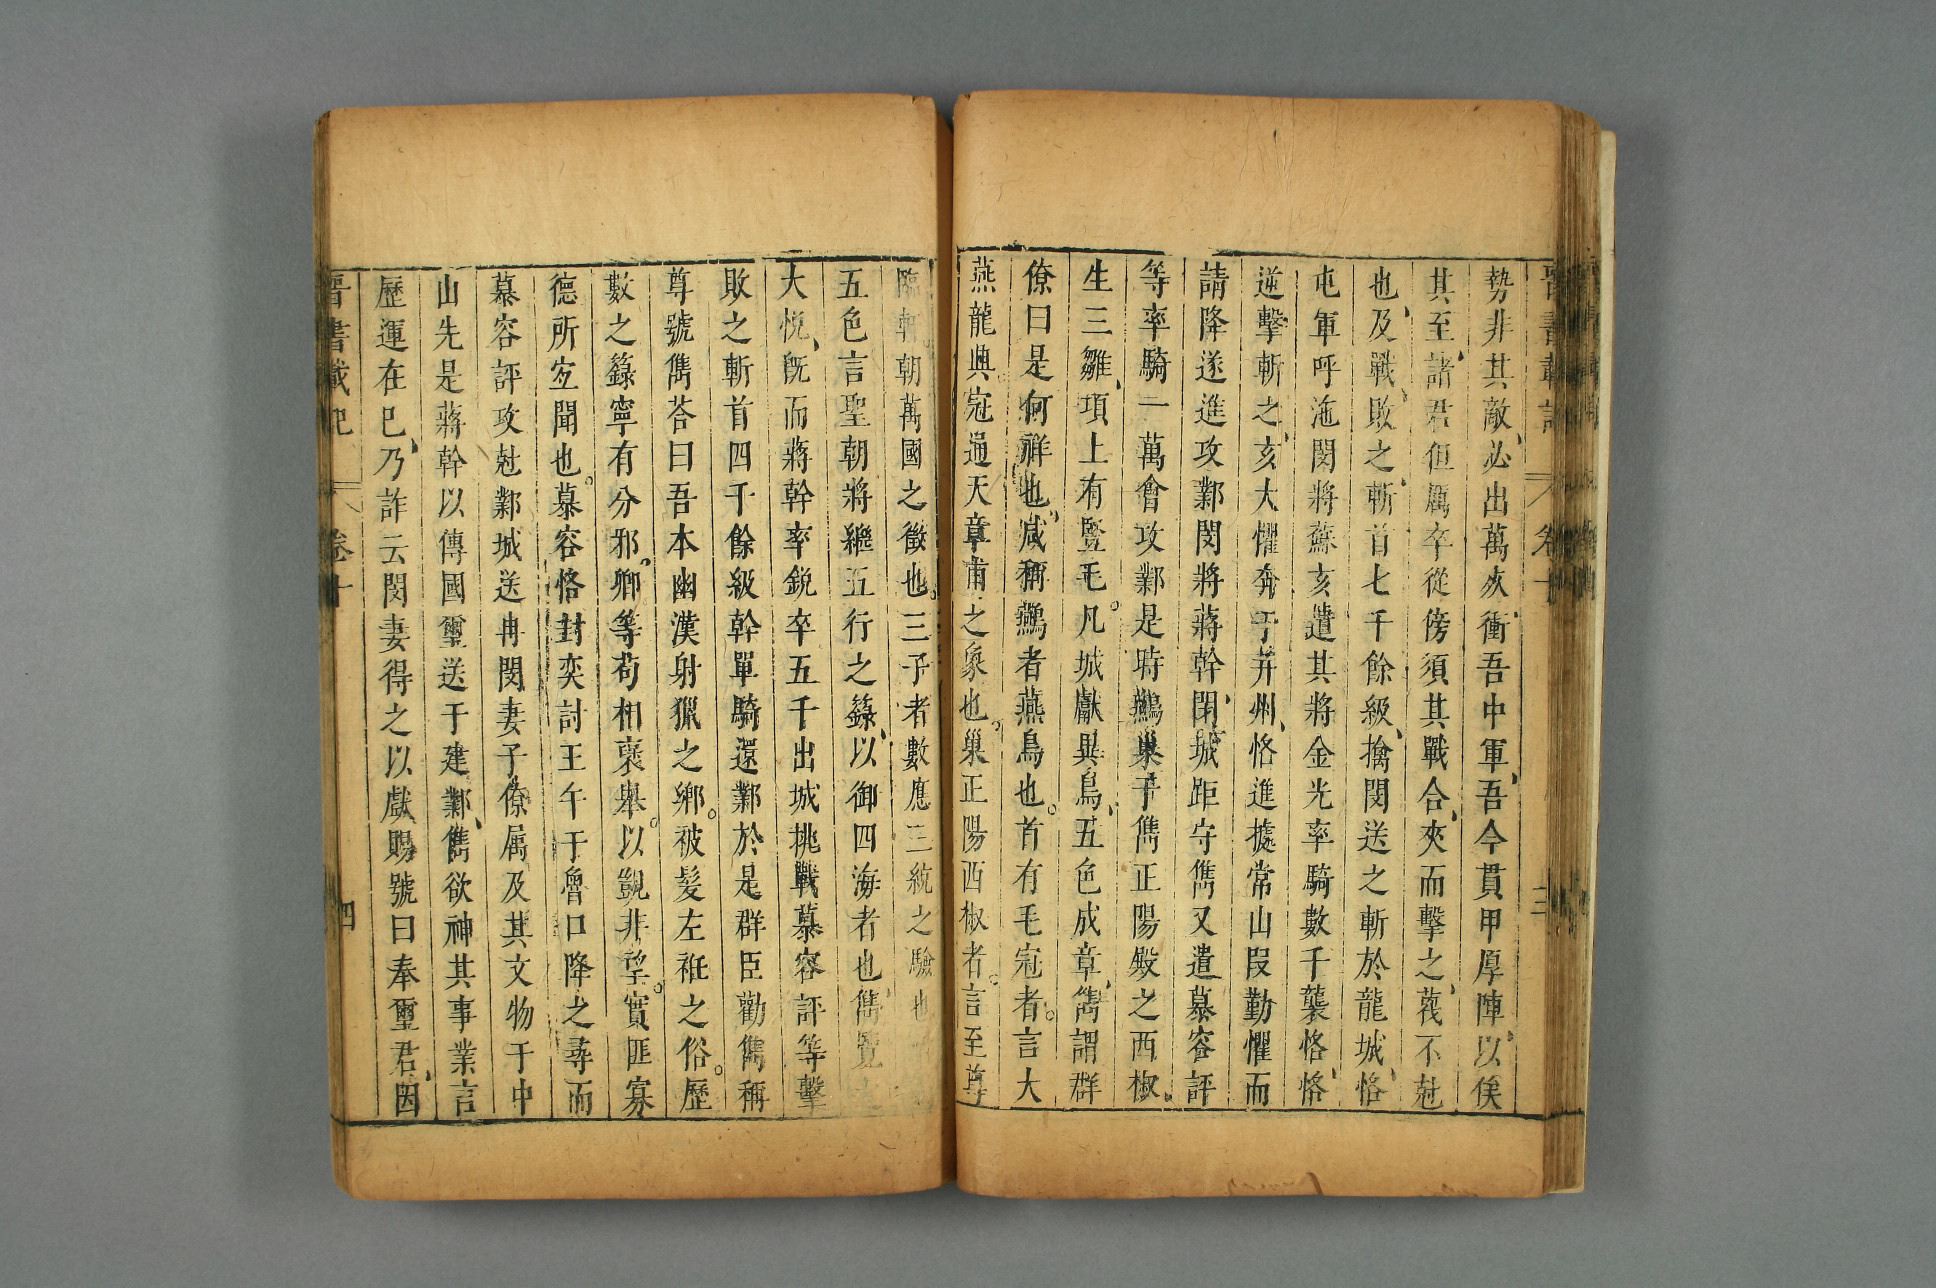 勢非其敵必出萬死衝吾中軍吾今貫甲厚陣以俟
其至諸君但厲卒從傍須其戰合夾而擊之蔑不尅
也及戰敗之斬首七千餘級擒閔送之斬於龍城恪
屯軍呼沲閔將蘇亥遣其將金光率騎數千襲恪恪
逆擊斬之亥大懼奔于并州恪進據常山段勤懼而
請降遂進攻鄴閔將蔣幹閉城距守儁又遣慕容評
等率騎一萬會攻鄴是時鷰巢于儁正陽殿之西椒
生三雛項上有豎毛凡城獻異鳥五色成章儁謂群
僚曰是何祥也咸稱鷰者燕鳥也首有毛冠者言大
燕龍興冠通天章甫之象也巢正陽西椒者言至尊
臨軒朝萬國之徵也三子者數應三統之驗也
五色言聖朝將繼五行之籙以御四海者也儁覽
大悅既而蔣幹率銳卒五千出城挑戰慕容評等擊
敗之斬首四千餘級幹單騎還鄴於是群臣勸儁稱
尊號儁荅曰吾本幽漠射獵之鄉被髮左衽之俗歷
數之籙寧有分邪卿等苟相褒舉以覬非望實匪寡
德所宐聞也慕容恪封奕討王午于魯口降之尋而
慕容評攻尅鄴城送冉閔妻子僚属及其文物于中
山先是蔣幹以傳國璽送于建鄴儁欲神其事業言
歷運在已乃詐云閔妻得之以獻賜號曰奉璽君因
晉書載記 卷十 四